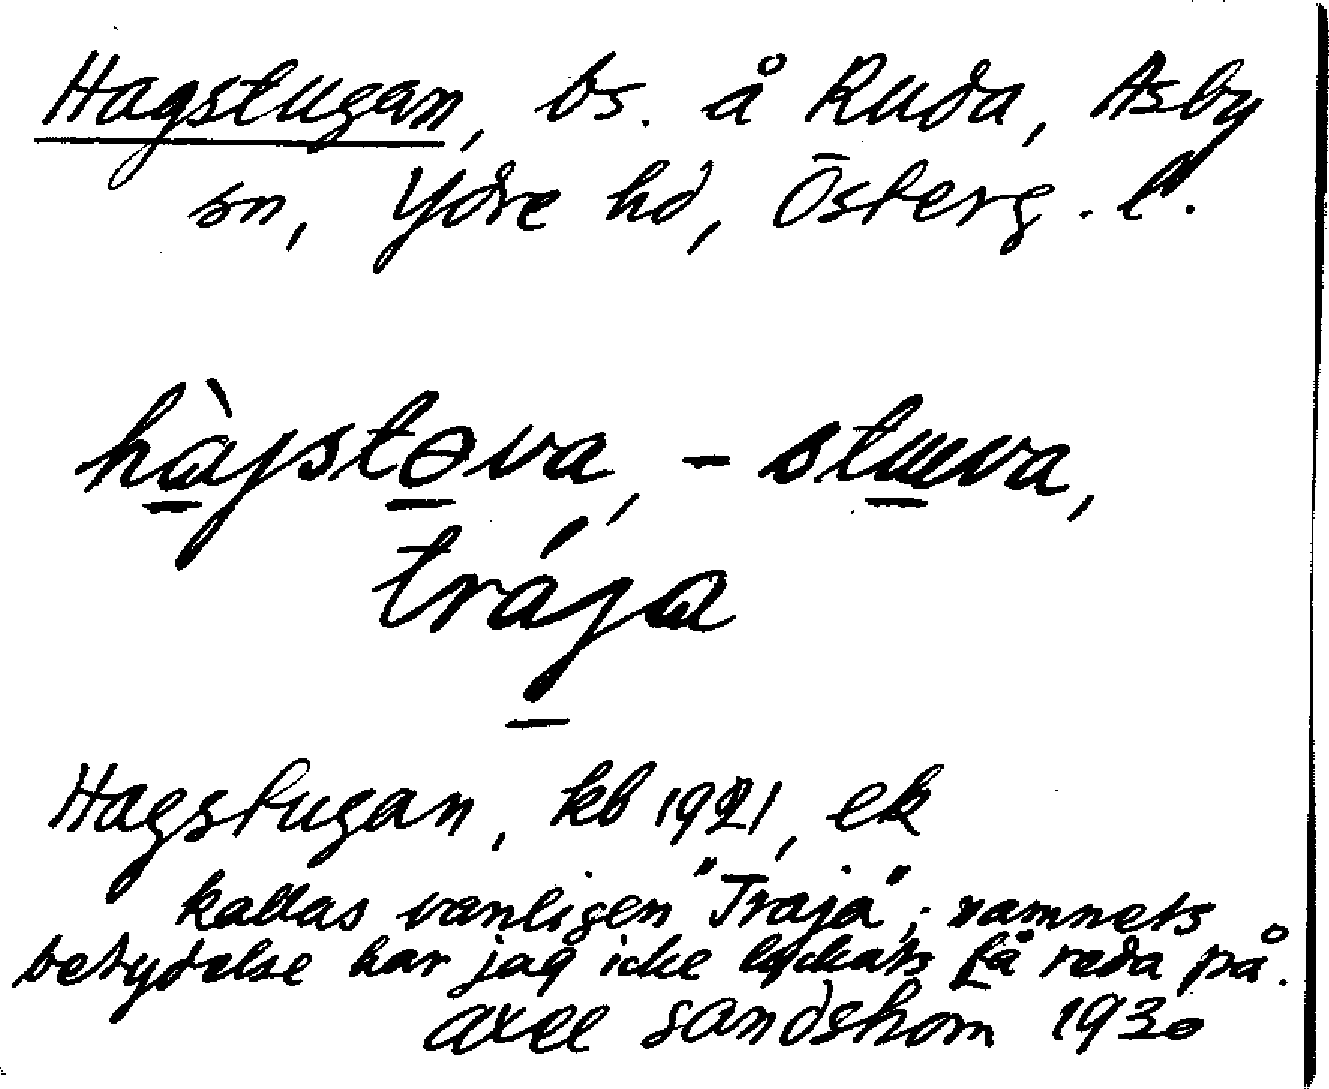 Hagstugan, bs. å Ruda, Asby
sn, Ydre hd, Österg. l.
hàjstɵva, -stɯva,
trája
Hagstugan, kb 1921, ek
kallas vanligen "Traja"; namnets
betydelse har jag icke lyckats få reda på.
Axel Sandstrom 1930